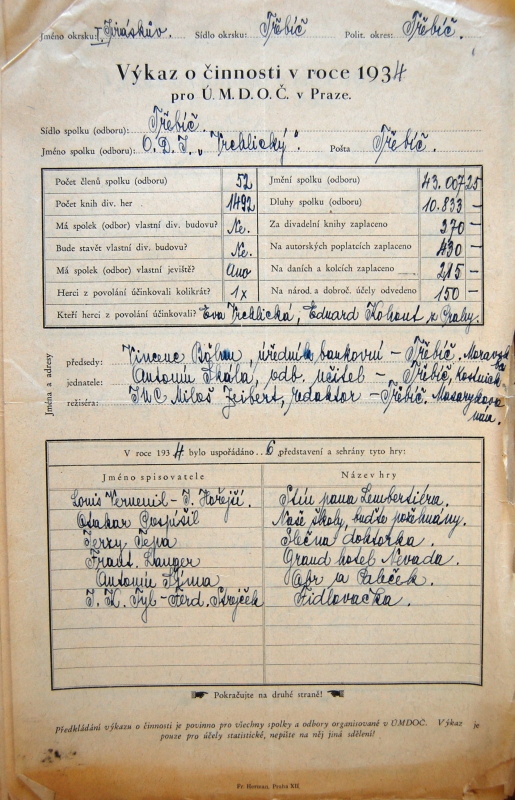 Jméno okrsku: I. Jiráskův. Sídlo okrsku: Třebíč. Polit. okres: Třebíč.
Výkaz o činnosti v roce 1934
pro Ú. M. D. O. Č. v Praze.
Sídlo spolku (odboru): Třebíč.
Jméno spolku (odboru): O. D. J. „Vrchlický“. Pošta Třebíč.
Počet členů spolku (odboru) 52 Jmění spolku (odboru) 43.007 25
Počet knih div. her 1492 Dluhy spolku (odboru) 10.833 —
Má spolek (odbor) vlastní div. budovu? Ne. Za divadelní knihy zaplaceno 370 —
Bude stavět vlastní div. budovu? Ne. Na autorských poplatcích zaplaceno 430 —
Má spolek (odbor) vlastní jeviště? Ano Na daních a kolcích zaplaceno 215 —
Herci z povolání účinkovali kolikrát? 1x Na národ. a dobroč. účely odvedeno 150 —
Kteří herci z povolání účinkovali? Eva Vrchlická, Eduard Kohout z Prahy.
Jména a adresy
předsedy: Vincenc Böhm, úředník bankovní — Třebíč.
jednatele: Antonín Skála, odb. učitel — Třebíč,
režiséra: Miloš Zeibert, redaktor — Třebíč. Masarykovo
nám.
V roce 1934 bylo uspořádáno 6 představení a sehrány tyto hry:
Jméno spisovatele Název hry
Louis Verneuil - J. Hořejší. Stín pana Lembertiéra.
Otakar Pospíšil Naše školy, buďte požehnány.
Jerzy Tepa Slečna doktorka.
Frant. Langer Grand hotel Nevada.
Antonín Obr a Paleček.
J. K. Tyl - Ferd. Strejček Fidlovačka.
Pokračujte na druhé straně!
Předkládání výkazu o činnosti je povinno pro všechny spolky a odbory organisované v ÚMDOČ. Výkaz je
pouze pro účely statistické, nepište na něj jiná sdělení!
Praha XII.